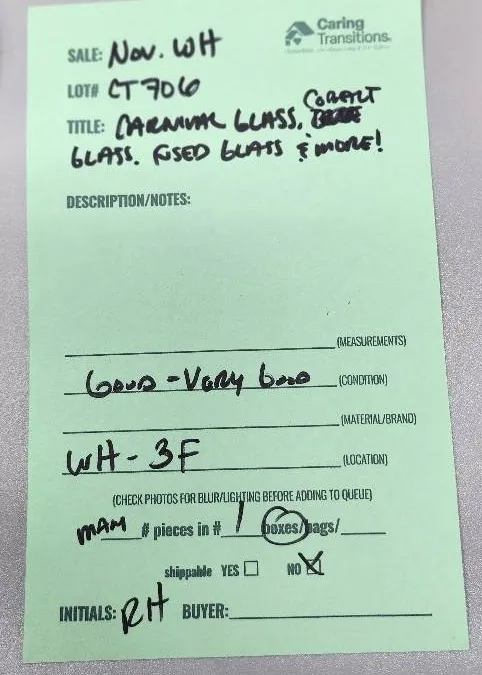 Caring
Transitions.
SALE: Nov. WH
LOT# CT706
TITLE: CARNIVAL GLASS, COBALT
GLASS. FUSED GLASS & MORE!
DESCRIPTION/NOTES:
(MEASUREMENTS)
GOOD - VERY GOOD (CONDITION)
(MATERIAL/BRAND)
WH - 3F (LOCATION)
(CHECK PHOTOS FOR BLUR/LIGHTING BEFORE ADDING TO QUEUE)
# pieces in # 1 boxes/bags/
shippable YES NO
INITIALS: RH BUYER: